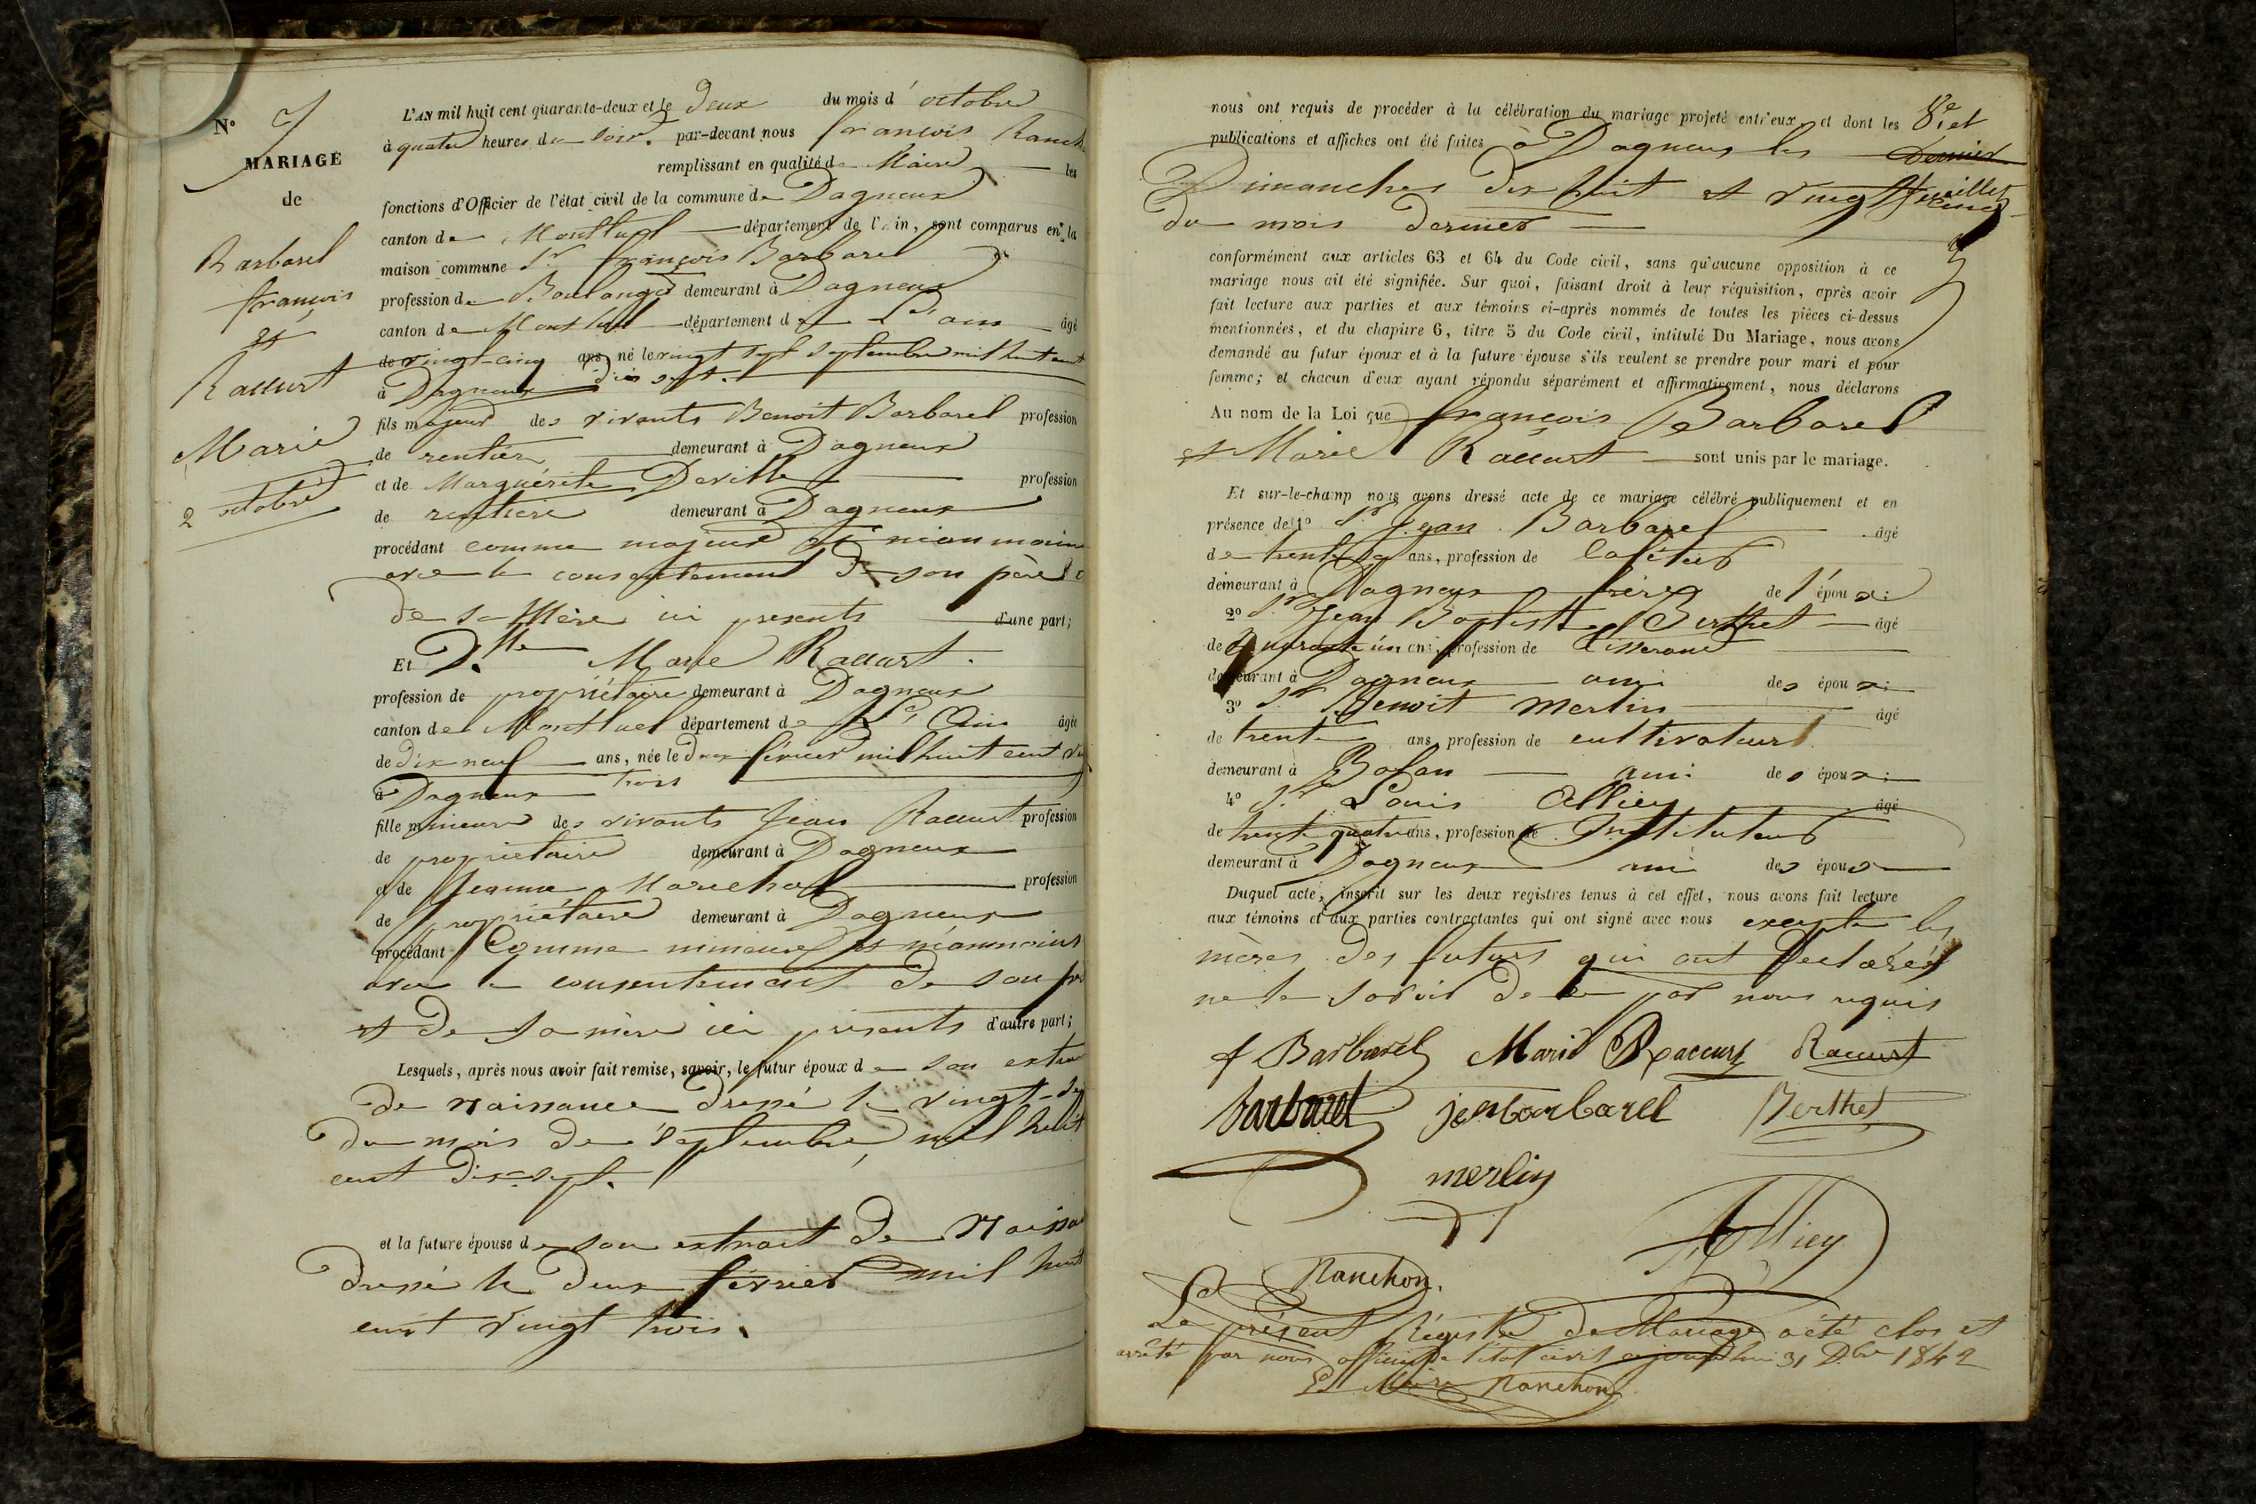 N° 7
MARIAGE
de
Barbarel
françois
et
Raccurt
Marie
2 octobre
L'AN mil huit cent quarante-deux et le deux du mois d'octobre
à quatre heures du soir. par-devant nous françois Ranch
remplissant en qualité de Maire les
fonctions d'Officier de l'état civil de la commune de Dagneux
canton de Montluel département de l'Ain, sont comparus en la
maison commune Sr françois Barbarel
profession de Boulanger demeurant à Dagneux
canton de Montluel département de L'ain âgé
de vingt-cinq ans, né le vingt sept septembre mil huit cent
à Dagneux dix sept.
fils majeur des vivants Benoit Barbarel profession
de rentier demeurant à Dagneux
et de Marguérite Deville profession
de rentière demeurant à Dagneux
procédant comme majeur et néanmoins
avec le consentement de son père et
de sa Mère ici presents d'une part;
Et Dlle Marie Raccurt.
profession de propriétaire demeurant à Dagneux
canton de Montluel département de L'Ain âgée
de dix neuf ans, née le deux février mil huit cent vi
à Dagneux trois
fille mineure des vivants Jean Raccurt profession
de propriétaire demeurant à Dagneux
et de Jeanne Marechal profession
de propriétaire demeurant à Dagneux
procédant Comme mineure et néanmoins
avec le consentement de son pè
et de sa mère ici présents d'autre part;
Lesquels, après nous avoir fait remise, savoir, le futur époux de son extrai
de naissance dressé le vingt-se
du mois de septembre mil huit
cent dix-sept.
et la future épouse de son extrait de Naissa
dressé le deux février mil huit
cent vingt trois.
nous ont requis de procéder à la célébration du mariage projeté entr'eux, et dont les 1re et
publications et affiches ont été faites à Dagneux les dernier
Dimanches dix huit et vingt cinq
du mois dernier
conformément aux articles 63 et 64 du Code civil, sans qu'aucune opposition à ce
mariage nous ait été signifiée. Sur quoi, faisant droit à leur réquisition, après avoir
fait lecture aux parties et aux témoins ci-après nommés de toutes les pièces ci-dessus
mentionnées, et du chapitre 6, titre 5 du Code civil, intitulé Du Mariage, nous avons
demandé au futur époux et à la future épouse s'ils veulent se prendre pour mari et pour
femme; et chacun d'eux ayant répondu séparément et affirmativement, nous déclarons
Au nom de la Loi que françois Barbarel
et Marie Raccurt sont unis par le mariage.
Et sur-le-champ nous avons dressé acte de ce mariage célébré publiquement et en
présence de 1° Sr Jean Barbarel âgé
de trente ans, profession de Cafétier
demeurant à Dagneux frère de l'époux;
2° Sr Jean Baptiste Berthet âgé
de quarante un ans, profession de tisserand
demeurant à Dagneux ami des époux;
3° Sr Benoit Merlin âgé
de trente ans, profession de cultivateur
demeurant à Balan ami des époux;
4° Sr Louis Alliey âgé
de trente quatre ans, profession de Instituteur
demeurant à Dagneux ami des époux
Duquel acte, inscrit sur les deux registres tenus à cet effet, nous avons fait lecture
aux témoins et aux parties contractantes qui ont signé avec nous excepté les
mères des futurs qui ont déclaré
ne le savoir de ce par nous requis
f Barbarel Marie Raccurt Raccurt
barbarel jean barbarel Berthet
merlin
Alliey
Ranchon.
Le présent Régistre de Mariage a été clos et
arrêté par nous officier de l'état civil aujourd'hui 31 Dbre 1842
Le Maire Ranchon